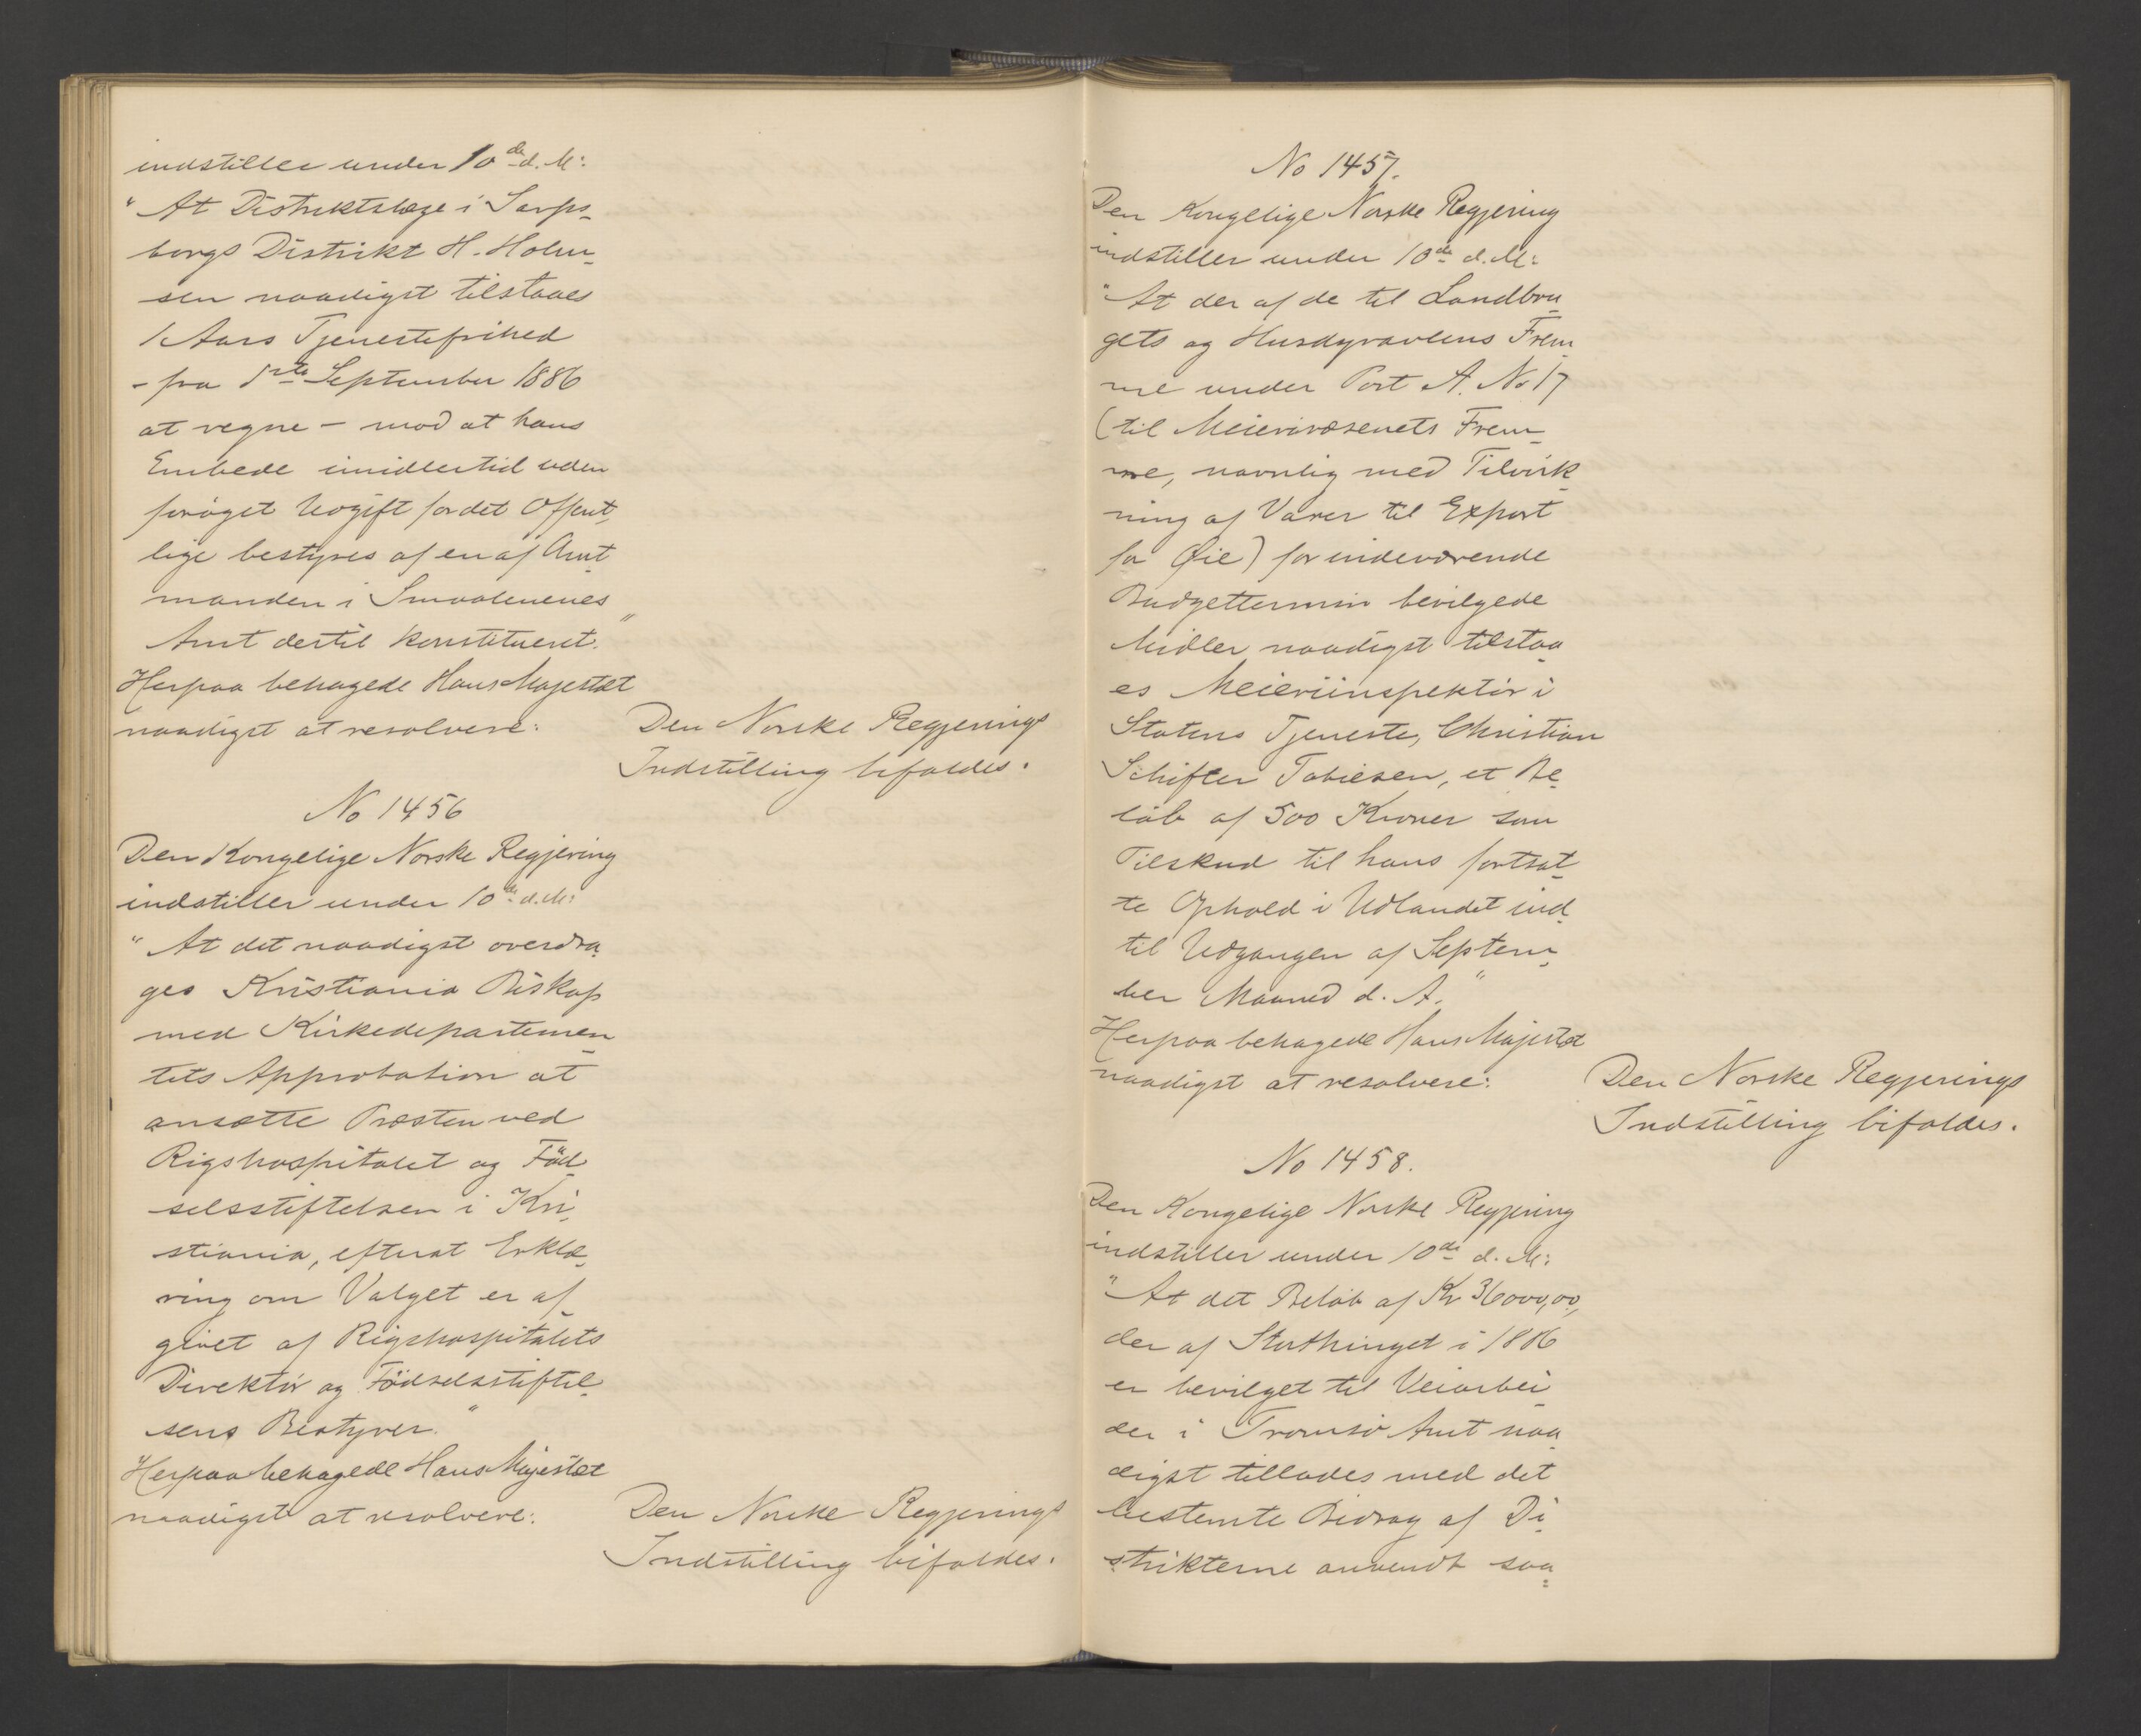 indstiller under 10de d. M:
"At Distriktslæge i Sarps-
borgs Distrikt H. Holm-
sen naadigst tilstaaes
1 Aars Tjenestefrihed
- fra 1ste September 1886
at regne - mod at hans
Embede imidlertid uden
forøget Udgift for det Offent-
lige bestyres af en af Amt
manden i Smaalenenes
Amt dertil konstitueret."
Herpaa behagede Hans Majestæt
naadigst at resolvere:
Den Norske Regjerings
Indstilling bifaldes.
No 1456
Den Kongelige Norske Regjering
indstiller under 10de d. M:
"At det naadigst overdra-
ges Kristiania Biskop
med Kirkedepartemen-
tets Approbation at
ansætte Præsten ved
Rigshospitalet og Fød-
selsstiftelsen i Kri-
stiania, efterat Erklæ-
ring om Valget er af-
givet af Rigshospitalets
Direktør og Fødselsstiftel-
sens Bestyrer."
Herpaa behagede Hans Majestæt
naadigst at resolvere:
Den Norske Regjerings
Indstilling bifaldes.
No 1457.
Den Kongelige Norske Regjering
indstiller under 10de d. M:
"At der af de til Landbru-
gets og Husdyravlens Frem-
me under Post A. No 17
(til Meierivæsenets Frem-
me, navnlig med Tilvirk-
ning af Varer til Export
for Øie) for indeværende
Budgettermin bevilgede
Midler naadigst tilstaa-
es Meieriinspektør i
Statens Tjeneste, Christian
Schifter Tobiesen, et Be-
løb af 500 Kroner som
Tilskud til hans fortsat-
te Ophold i Udlandet ind-
til Udgangen af Septem-
ber Maaned d. A."
Herpaa behagede Hans Majestæt
naadigst at resolvere:
Den Norske Regjerings
Indstilling bifaldes.
No 1458.
Den Kongelige Norske Regjering
indstiller under 10de d. M:
"At det Beløb af Kr 36000,00,
der af Storthinget i 1886
er bevilget til Veiarbei-
der i Tromsø Amt naa-
digst tillades med det
bestemte Bidrag af Di-
strikterne anvendt saa-